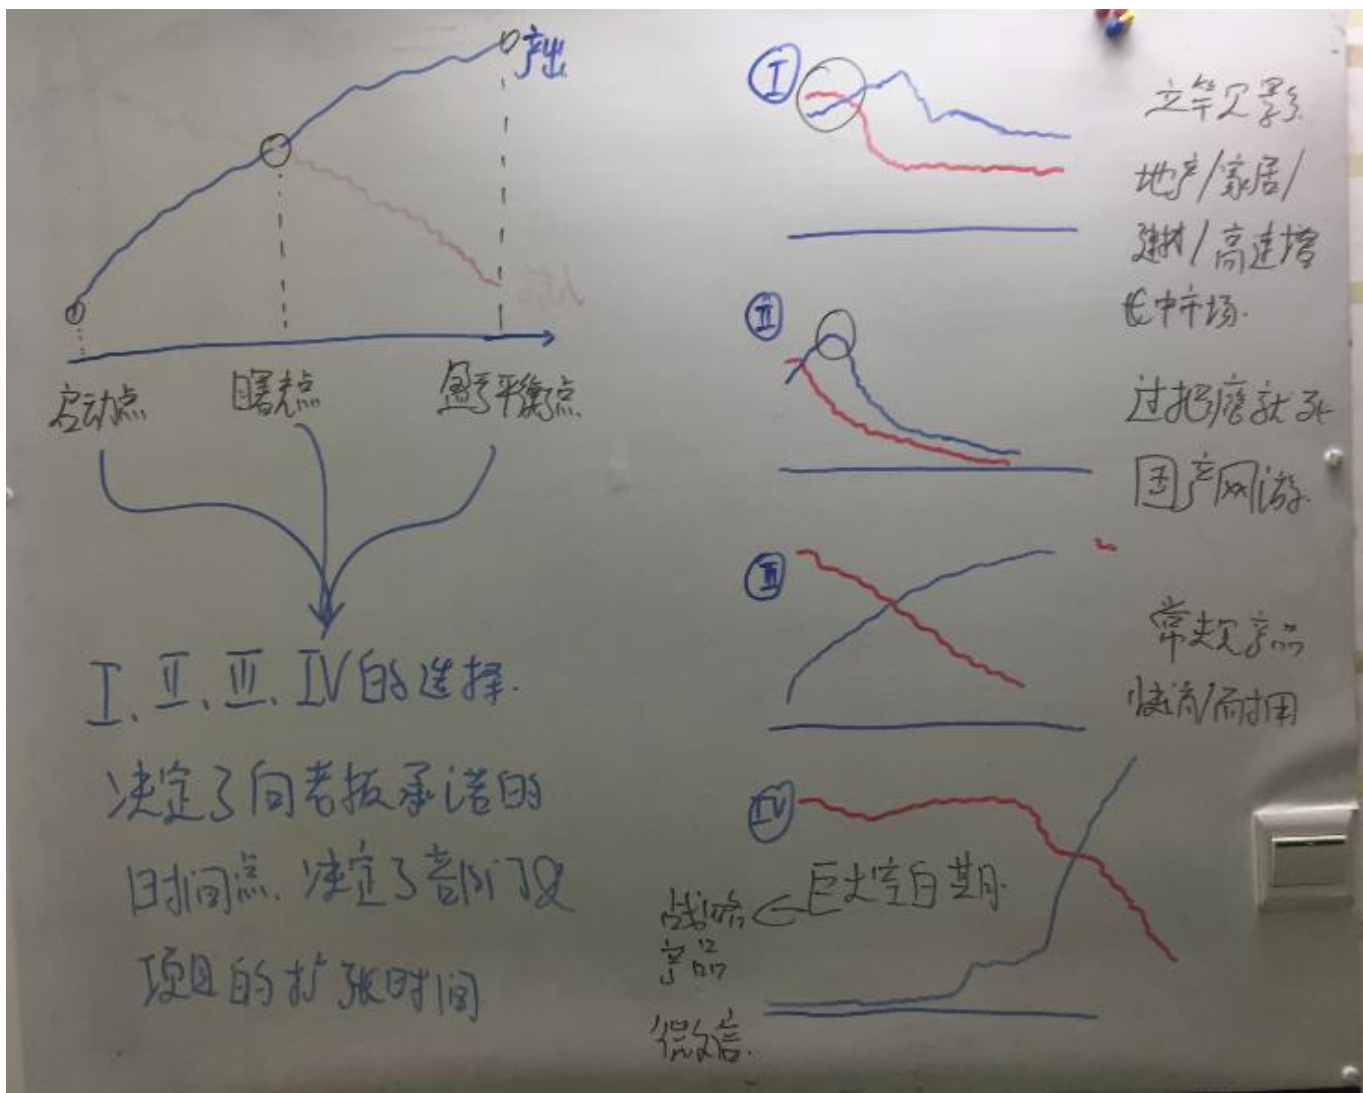 产出
启动点
曙光点
盈亏平衡点
I、II、III、IV的选择.
决定了向老板承诺的
时间点.决定了部门及
项目的扩张时间
I
立竿见影
地产/家居/
建材/高速增
长中市场.
II
过把瘾就死
国产网游.
III
常规产品
快消/耐用
IV
巨大空白期.
战略
产品
微信.